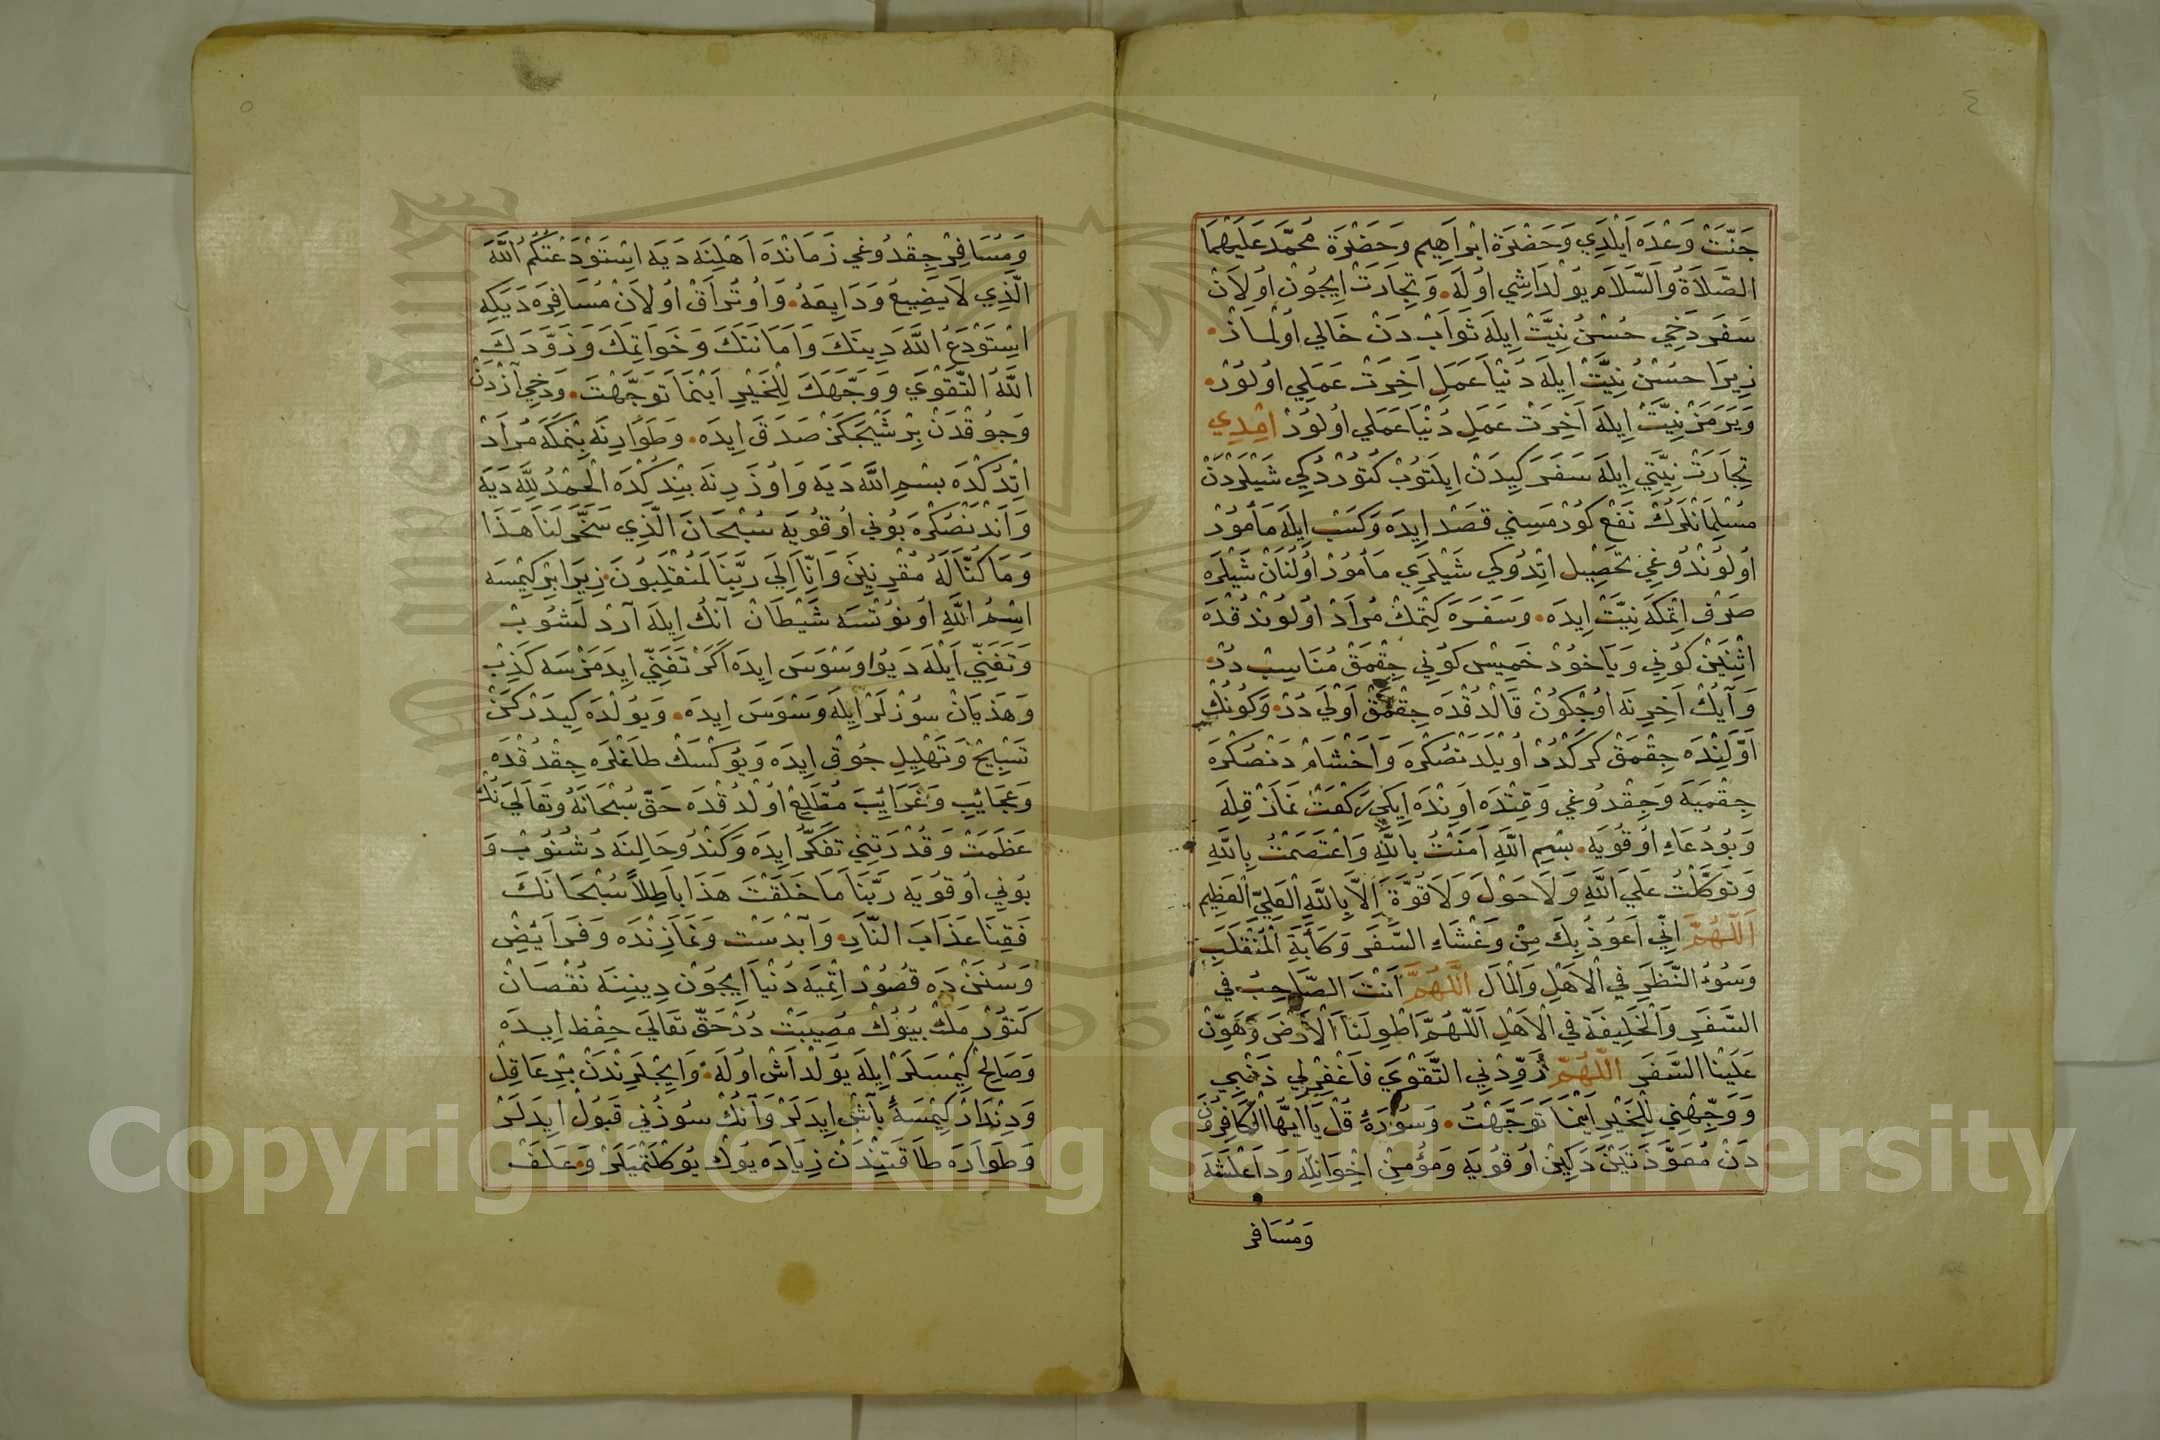 ٤
جَنَّتْ وَعْدَه اَيْلَدِي وَحَضْرَةِ اِبْرَاهِيم وَحَضْرَةِ مُحَمَّدْ عَلَيْهِمَا
الصَّلَاةُ وَالسَّلَام يُولْدَاشِي اُولَه. وَتِجَارَتْ اِيچُونْ اُولَانْ
سَفَرْ دَخِي حُسْنِ نِيَّتْ اِيلَه ثَوَابْ دَنْ خَالِي اُولْمَازْ.
زِيرَا حُسْنِ نِيَّتْ اِيلَه دُنْيَا عَمَلِ اَخِرَتْ عَمَلِي اُولُورْ.
وَيَرَمَزْ نِيَّتْ اِيلَه اَخِرَتْ عَمَلِ دُنْيَا عَمَلِي اُولُورْ اِمْدِي
تِجَارَتْ نِيَّتِي اِيلَه سَفَرَ كِيدَنْ اِيلَتُوبْ كَتُورْدُكِي شَيْلَرْدَنْ
مُسْلِمَانْلَرَكْ نَفْعِ كُورْمَسِنِي قَصْد اِيدَه وَكَسْب اِيلَه مَأْمُورْ
اُولُونْدُوغِي تَحْصِيل اِتْدُوكِي شَيْلَرِي مَأْمُورْ اُولُنَانْ شَيْلَرَه
صَرْف اِتْمَكَه نِيَّتْ اِيدَه. وَسَفَرَه كِتْمَكْ مُرَادْ اُولُونْدُقْدَه
اِثْنَيْن كُونِي وَيَاخُودْ خَمِيسْ كُونِي چِقْمَقْ مُنَاسِبْ دُرْ.
وَآيُكْ اَخِرِنَه اُوچْكُونْ قَالْدُقْدَه چِقْمَقْ اَوْلَى دُرْ. وَكُونُكْ
اَوَّلِنْدَه چِقْمَقْ كَرَكْدُرْ اُويْلَدَنْصُكْرَه وَاَخْشَامْ دَنْصُكْرَه
چِقْمَيَه وَچِقْدُوغِي وَقِتْدَه اَوِنْدَه اِيكِي رَكْعَتْ نَمَازْ قِلَه
وَبُو دُعَاءِ اُوقُويَه. بِسْمِ اللَّهِ اَمَنْتُ بِاللَّهِ وَاعْتَصَمْتُ بِاللَّهِ
وَتَوَكَّلْتُ عَلَى اللَّهِ وَلَا حَوْلَ وَلَا قُوَّةَ اِلَّا بِاللَّهِ الْعَلِيِّ الْعَظِيمِ
اَللَّهُمَّ اِنِّي اَعُوذُ بِكَ مِنْ وَعْشَاءِ السَّفَرِ وَكَأَبَةِ الْمُنْقَلَبِ
وَسُوءُ النَّظَرِ فِي الْاَهْلِ وَالْمَالِ اَللَّهُمَّ اَنْتَ الصَّاحِبُ فِي
السَّفَرِ وَالْخَلِيفَةِ فِي الْاَهْلِ اَللَّهُمَّ اطْوِلَنَا الْاَرْضَ وَهَوِّنْ
عَلَيْنَا السَّفَرَ اللَّهُمَّ زَوِّدْنِي التَّقْوَى فَاغْفِرْلِي ذَنْبِي
وَوَجِّهْنِي لِلْخَيْرِ اَيْنَمَا تَوَجَّهْتُ. وَسُورَةِ قُلْ يَا اَيُّهَا الْكَافِرُونَ
دَنْ مُعَوَّذَتَيْنْ دَكِينْ اُوقُويَه وَمُؤْمِنْ اِخْوَانِلَه وَدَاعْلَشَه
وَمُسَافِرْ
٥
وَمُسَافِرْ چِقْدُوغِي زَمَانْدَه اَهْلِنَه دَيَه اِسْتَوْدَعْتُكُمُ اللَّهَ
الَّذِي لَا يَضِيعُ وَدَايِعَهُ. وَاُوتُرَاقْ اُولَانْ مُسَافِرَه دَيَكِه
اِسْتَوْدَعُ اللَّهَ دِينَكَ وَاَمَانَتَكَ وَخَوَاتِمَكَ وَزَوَّدَكَ
اللَّهُ التَّقْوَى وَوَجَّهَكَ لِلْخَيْرِ اَيْنَمَا تَوَجَّهْتَ. وَدَخِي آزْدَنْ
وَچُوقْدَنْ بِرْ شَيْجَكَزْ صَدَقَ اِيدَه. وَطَوَارِنَه بِنْمَكَه مُرَادْ
اِتْدُكْدَه بِسْمِ اللَّه دَيَه وَاُوزَرِنَه بِنِدِكْدَه الْحَمْدُ لِلَّه دَيَه
وَاَنْدَنْصُكْرَه بُونِي اُوقُويَه سُبْحَانَ الَّذِي سَخَّرَ لَنَا هَذَا
وَمَا كُنَّا لَهُ مُقْرِنِينَ وَاِنَّا اِلَى رَبِّنَا لَمُنْقَلِبُونَ. زِيرَا بِرْ كِيمْسَه
اِسْمُ اللَّهِ اُونُوتْسَه شَيْطَانْ آنُكْ اِيلَه آرْدْلَشُوبْ
وَتَغَنِّي اَيْلَه دَيُو وَسْوَسَ اِيدَه اَكَرْ تَغَنِّي اِيدَمَزْسَه كَذِبْ
وَهَذَيَانْ سُوزْلَرْ اِيلَه وَسْوَسَ اِيدَه. وَيُولْدَه كِيدَرْكَنْ
تَسْبِيحْ وَتَهْلِيلِ چُوقْ اِيدَه وَيُوكْسَكْ طَاغْلَرَه چِقْدُقْدَه
وَعَجَايِبِ وَغَرَايِبَ مُطَّلِعْ اُولْدُقْدَه حَقّ سُبْحَانَهُ وَتَعَالَى نُكْ
عَظَمَتْ وَقُدْرَتِنِي تَفَكُّرْ اِيدَه وَكَنْدُو حَالِنَه دُشُنُوبْ وَ
بُونِي اُوقُويَه رَبَّنَا مَا خَلَقْتَ هَذَا بَاطِلًا سُبْحَانَكَ
فَقِنَا عَذَابَ النَّارِ. وَآبْدَسْت وَنَمَازِنْدَه وَفَرَائِضْ
وَسُنَنْ دَه قُصُورْ اِتْمَيَه دُنْيَا اِيچُونْ دِينِنَه نُقْصَانْ
كَتُورْمَكْ بِيُوكْ مُصِيبَتْ دُرْ حَقّ تَعَالَى حِفْظ اِيدَه
وَصَالِحْ كِيمْسَلَرْ اِيلَه يُولْدَاشْ اُولَه. وَاِيچْلَرِنْدَنْ بِرْ عَاقِلْ
وَدِنْدَارْ كِيمْسَه بَاشْ اِيدَلَرْ وَآنُكْ سُوزُنِي قَبُولْ اِيدَلَرْ
وَطَوَارَه طَاقَتِنْدَنْ زِيَادَه يُوكْ يُوكْلَتْمَيَلَرْ وَعَلَفْ
Copyright © King Saud University